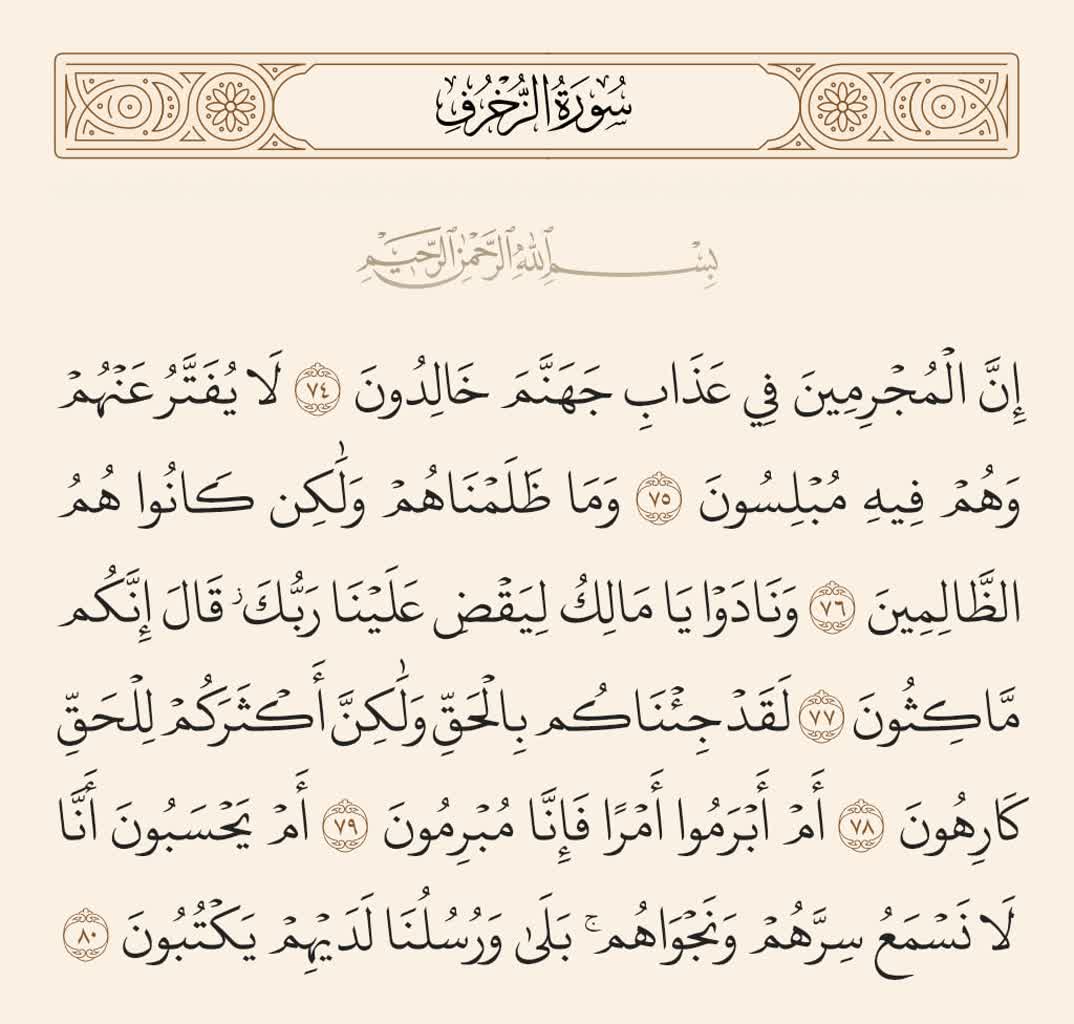 سُورَةُ الزُّخْرُفِ
بِسْمِ ٱللَّهِ ٱلرَّحْمَٰنِ ٱلرَّحِيمِ
إِنَّ الْمُجْرِمِينَ فِي عَذَابِ جَهَنَّمَ خَالِدُونَ ٧٤ لَا يُفَتَّرُ عَنْهُمْ
وَهُمْ فِيهِ مُبْلِسُونَ ٧٥ وَمَا ظَلَمْنَاهُمْ وَلَٰكِن كَانُوا هُمُ
الظَّالِمِينَ ٧٦ وَنَادَوْا يَا مَالِكُ لِيَقْضِ عَلَيْنَا رَبُّكَ ۖ قَالَ إِنَّكُم
مَّاكِثُونَ ٧٧ لَقَدْ جِئْنَاكُم بِالْحَقِّ وَلَٰكِنَّ أَكْثَرَكُمْ لِلْحَقِّ
كَارِهُونَ ٧٨ أَمْ أَبْرَمُوا أَمْرًا فَإِنَّا مُبْرِمُونَ ٧٩ أَمْ يَحْسَبُونَ أَنَّا
لَا نَسْمَعُ سِرَّهُمْ وَنَجْوَاهُم ۚ بَلَىٰ وَرُسُلُنَا لَدَيْهِمْ يَكْتُبُونَ ٨٠